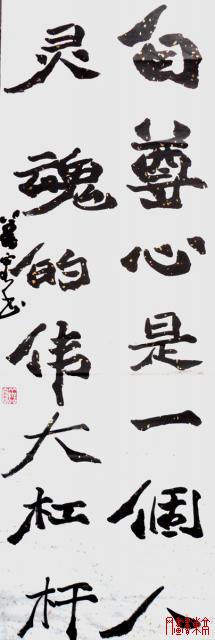 自尊心是一個人
灵魂的伟大杠杆